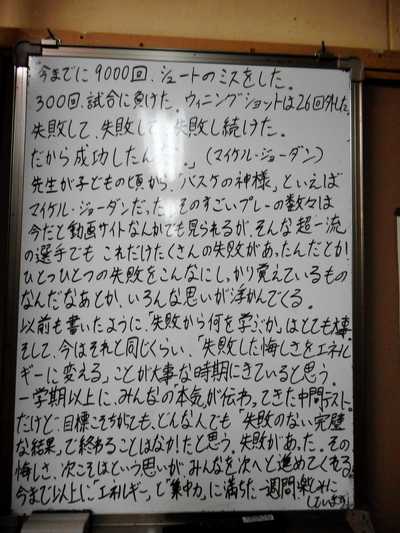 今までに9000回、シュートのミスをした。
300回、試合に負けた。ウィニングショットは26回外した。
失敗して、失敗して、失敗し続けた。
だから成功したん　。」(マイケル・ジョーダン)
先生が子どもの頃から、「バスケの神様」といえば
マイケル・ジョーダンだった。そのすごいプレーの数々は
今だと動画サイトなんかでも見られるが、そんな超一流
の選手でも これだけたくさんの失敗があったんだとか!
ひとつひとつの失敗をこんなにしっかり覚えているもの
なんだなあとか、いろんな思いが浮かんでくる。
以前も書いたように、「失敗から何を学ぶか」はとても大事。
そして、今はそれと同じくらい、「失敗した悔しさをエネル
ギーに変える」ことが大事な時期にきていると思う。
一学期以上に、みんなの「本気」が伝わってきた中間テスト。
だけど、目標こそちがても、どんな人でも「失敗のない完璧
な結果」で終わることはなかったと思う。失敗があった。その
悔しさ、次こそはという思いが、みんなを次へと進めてくれる。
今まで以上に「エネルギー」と「集中力」に満ちた一週間、楽しみに
しています